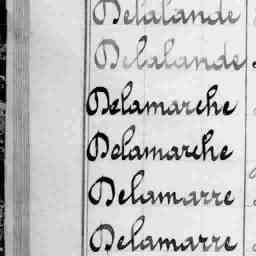 Delalande
Delalande
Delamarche
Delamarche
Delamarre
Delamarre